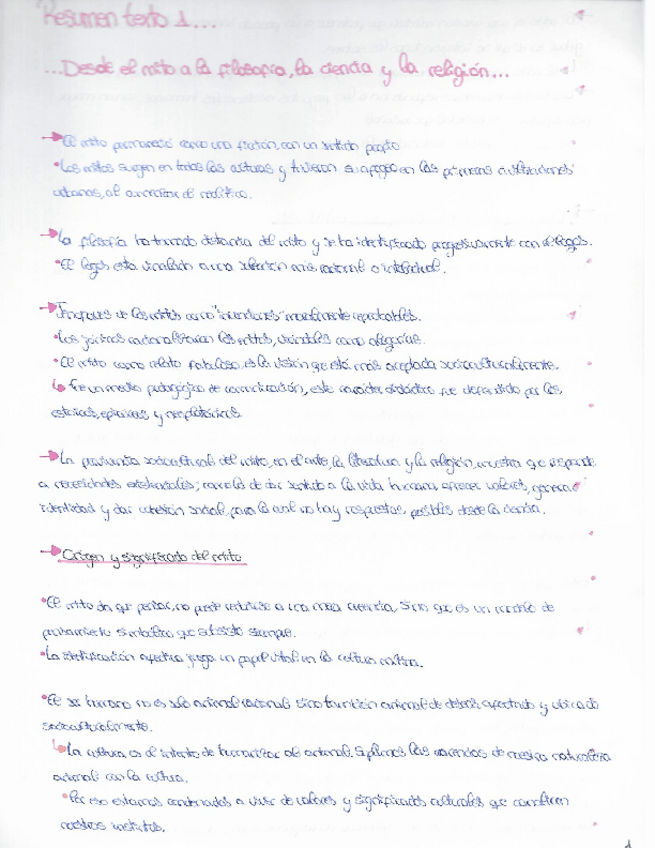 Resumen texto 1...
...Desde el mito a la filosofía, la ciencia y la religión...
El mito permaneció como una ficción, con un sentido propio
Los mitos surgen en todas las culturas y tuvieron su apogeo en las primeras civilizaciones
urbanas, al
La filosofía ha tomado distancia del mito y se ha identificado progresivamente con el logos.
El logos está vinculado a una más racional o intelectual.
de los mitos como "moralmente reprobables.
Los racionalizaron los mitos, como alegorías.
El mito como relato fabuloso, es la visión que está más aceptada socioculturalmente.
Fue un medio pedagógico de comunicación, este carácter didáctico fue defendido por los
estoicos, epicúreos y neoplatónicos
La sociocultural del mito, en el arte, la literatura y la religión, muestra que responde
a necesidades existenciales; como la de dar sentido a la vida humana, ofrecer valores, generar
identidad y dar cohesión social, para la cual no hay respuestas posibles desde la ciencia.
Origen y significado del mito
El mito da que pensar, no puede reducirse a una mera creencia, sino que es un modelo de
pensamiento simbólico que subsiste siempre.
La identificación afectiva juega un papel vital en la cultura mítica.
El ser humano no es sólo animal racional sino también animal de deseos, afectado y ubicado
socioculturalmente.
La cultura es el intento de humanizar al animal. Suplimos las carencias de nuestra naturaleza
animal con la cultura.
Por eso estamos condenados a vivir de valores y significados culturales que
nuestros instintos.
1